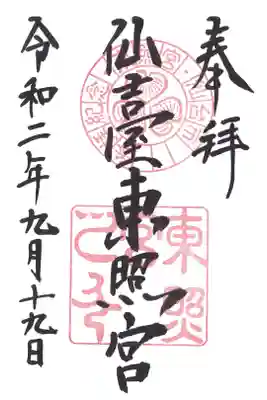 奉拝
仙臺東照宮
令和二年九月十九日
東照